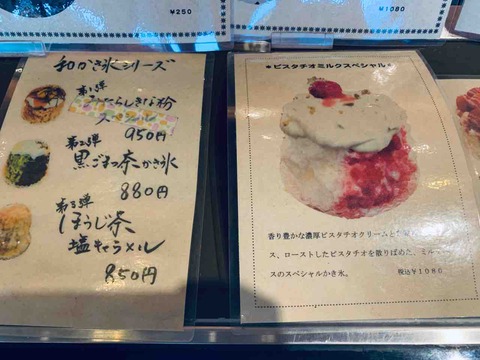 ¥250
¥1080
和かき氷シリーズ
第1弾
みたらしきな粉
スペシャル
950円
第2弾
黒ごまっ茶かき氷
880円
第3弾
ほうじ茶
塩キャラメル
850円
*ピスタチオミルクスペシャル*
香り豊かな濃厚ピスタチオクリームと
ス、ローストしたピスタチオを散りばめた、ミル
スのスペシャルかき氷。 税込¥1080